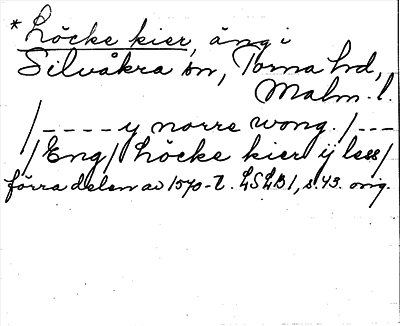 * Löcke kier, äng i
Silvåkra sn, Torna hd,
Malm. l.
/ - - - - y norre wong. / - - -
/ Eng / Löcke kier ÿ less /
förra delen av 1570-t. LSLB I, s. 43. orig.